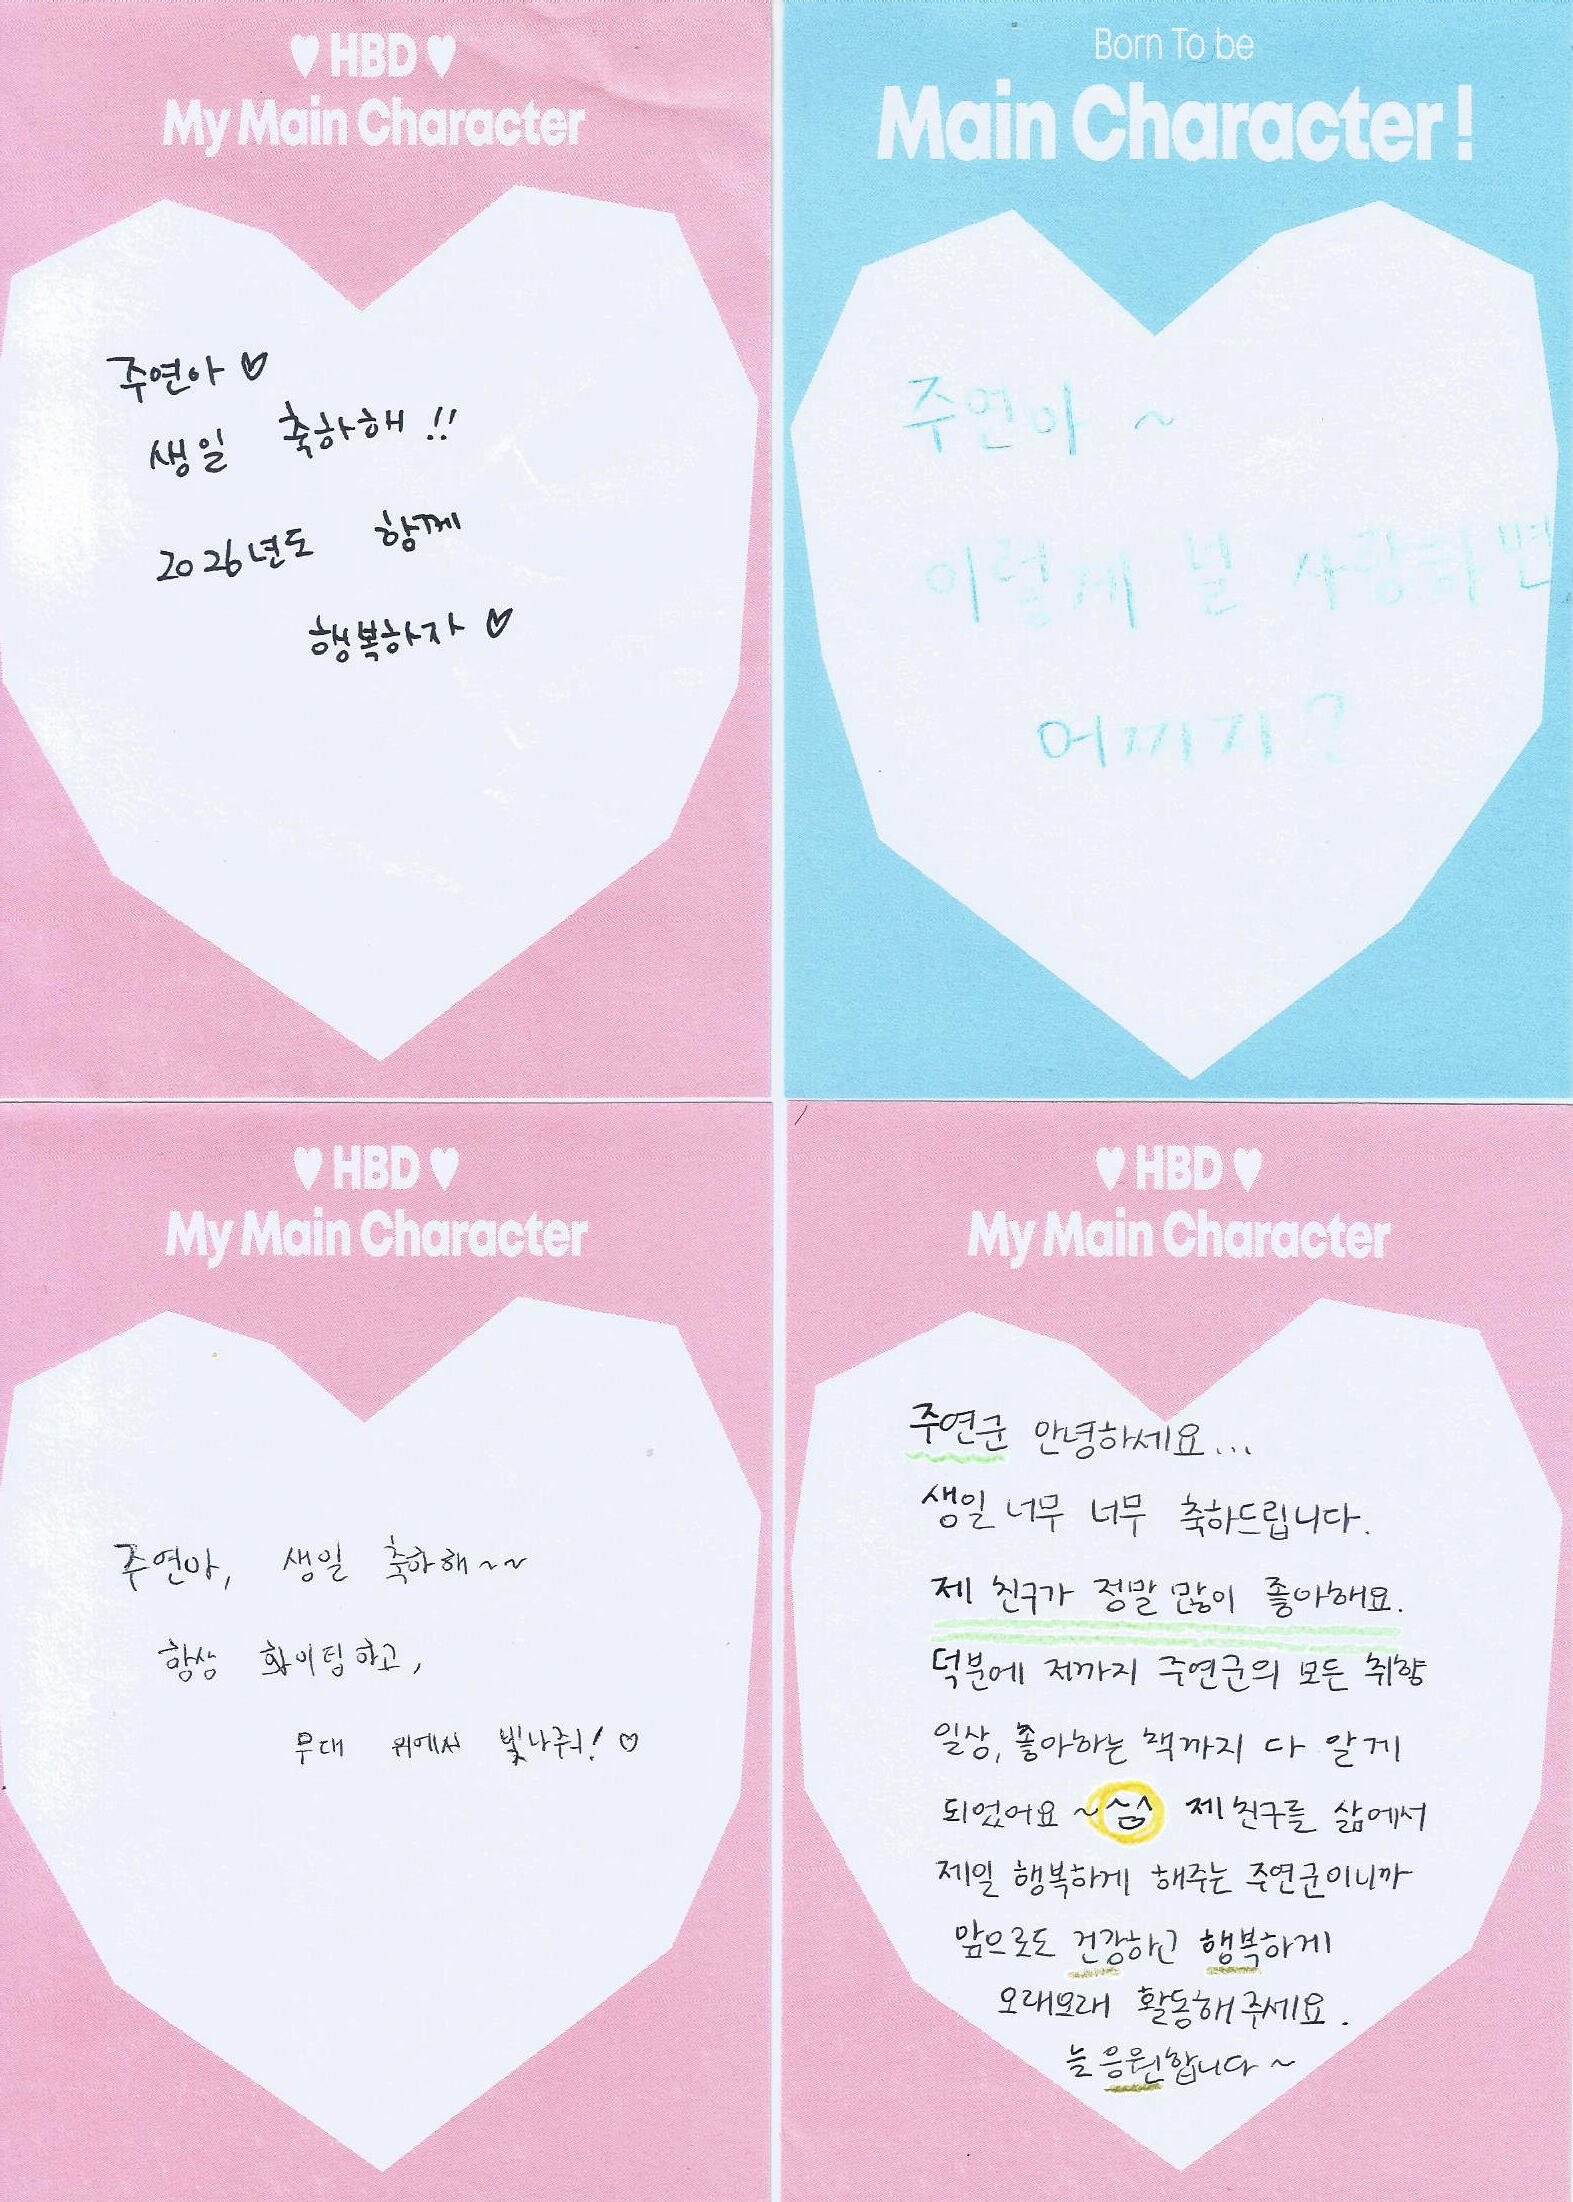 ♥ HBD ♥
My Main Character
주연아 ♡
생일 축하해!!
2026년도 함께
행복하자 ♡
Born To be
Main Character!
주연아 ~
이렇게 널 사랑하면
어찌지?
♥ HBD ♥
My Main Character
주연아, 생일 축하해~~
항상 화이팅하고,
무대 위에서 빛나줘! ♡
♥ HBD ♥
My Main Character
주연군 안녕하세요...
생일 너무 너무 축하드립니다.
제 친구가 정말 많이 좋아해요.
덕분에 저까지 주연군의 모든 취향
일상, 좋아하는 책까지 다 알게
되었어요 ~ 제 친구를 삶에서
제일 행복하게 해주는 주연군이니까
앞으로도 건강하고 행복하게
오래오래 활동해주세요.
늘 응원합니다~